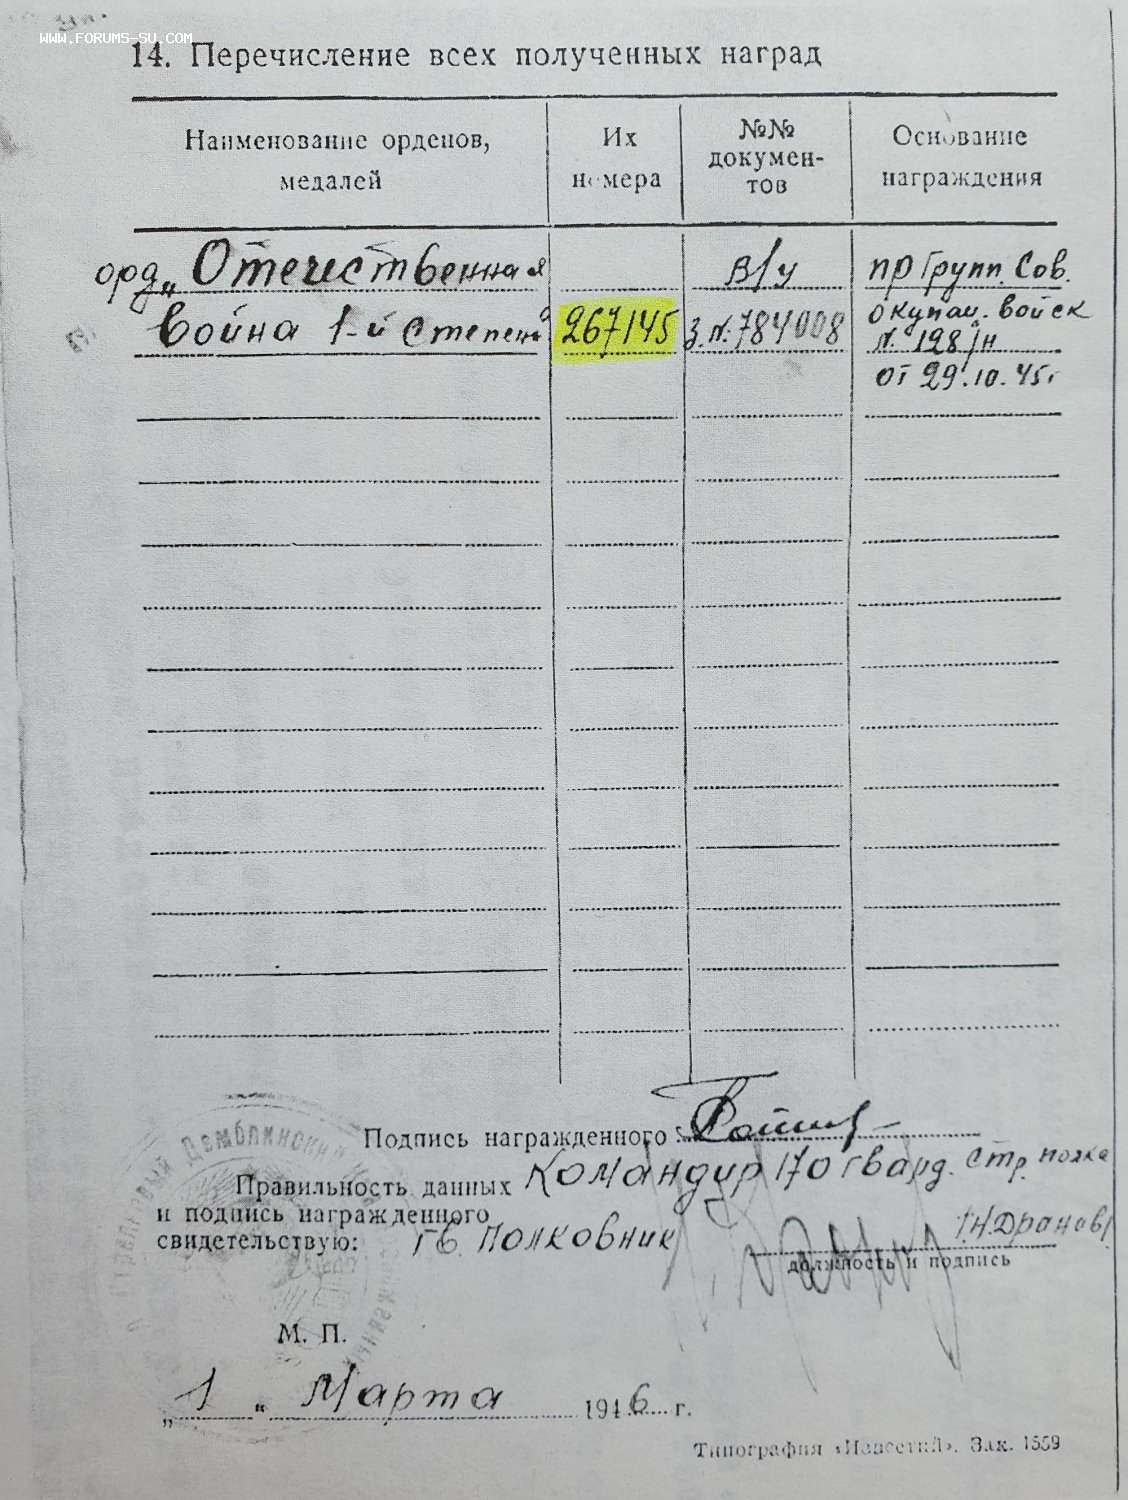 WWW.FORUMS-SU.COM
14. Перечисление всех полученных наград
Наименование орденов, медалей
Их номера
№№ докумен-тов
Основание награждения
орд „Отечественная
Война 1-й Степени
267145
В/у
З.N. 784008
пр Групп. Сов.
окупац. войск
N. 128/н
от 29.10.45г
Подпись награжденного:
Правильность данных
и подпись награжденного
свидетельствую:
Командир 170 гвард. стр. полка
гв. Полковник
должность и подпись
М. П.
„1“ Марта 1946 г.
Типография «Известий». Зак. 1559